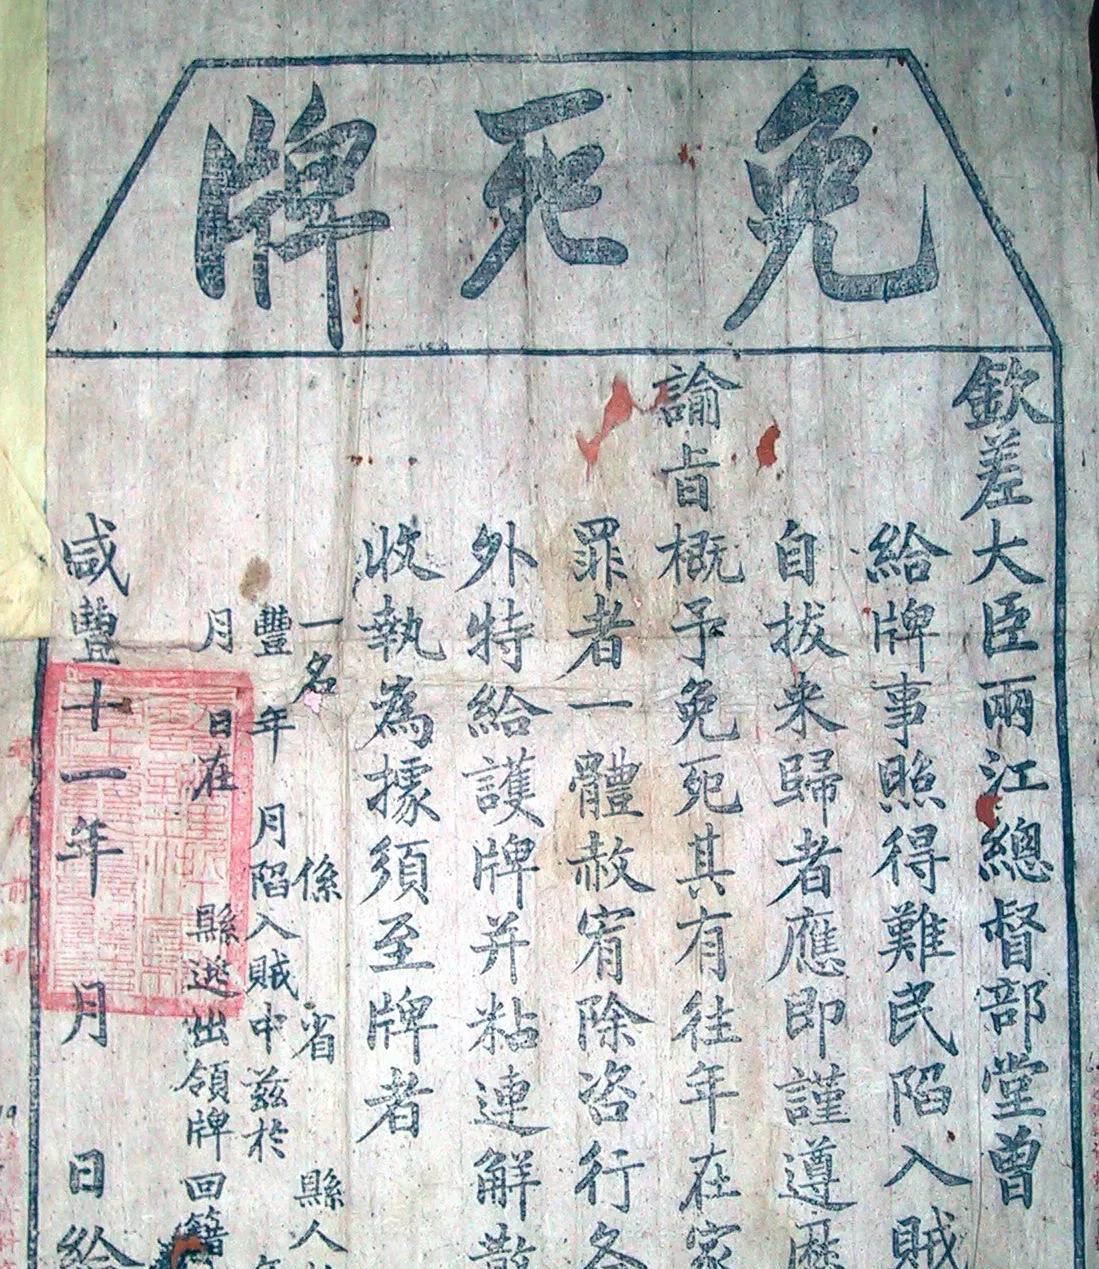 免死牌
欽差大臣兩江總督部堂曾
給牌事照得難民陷入賊
自拔来歸者應即謹遵歷
諭旨概予免死其有往年在家
罪者一體赦宥除咨行各
外特給護牌并粘連解散
收執為據須至牌者
一名 係 省 縣人
豐 年 月陷入賊中茲於
月 日在 縣逃出領牌回籍
咸豐十一年 月 日給